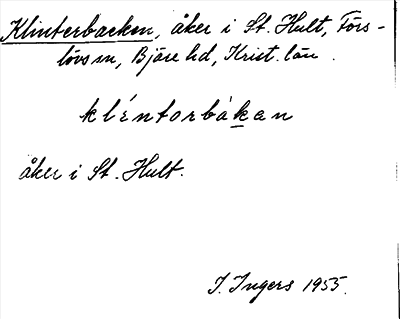 Klinterbacken, åker i St. Hult, Förs-
lövs sn, Bjäre hd, Krist. län.
kléntorbákan
åker i St. Hult.
I. Ingers 1955.